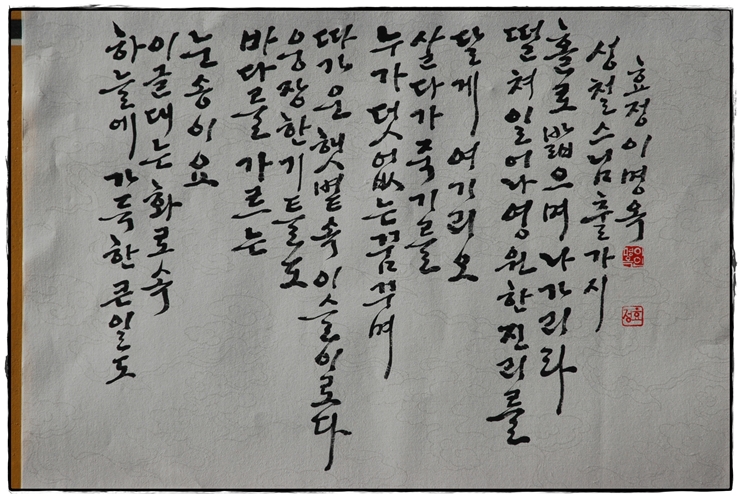 하늘에 가득한 큰일도
이글대는 화로 속
눈송이요
바다를 가르는
웅장한 기틀도
따가운 햇볕 속 이슬이로다
누가 덧없는 꿈꾸며
살다가 죽기를
달게 여기리오
떨쳐 일어나 영원한 진리를
홀로 밟으며 나가리라
성철스님 출가시
효정 이명옥